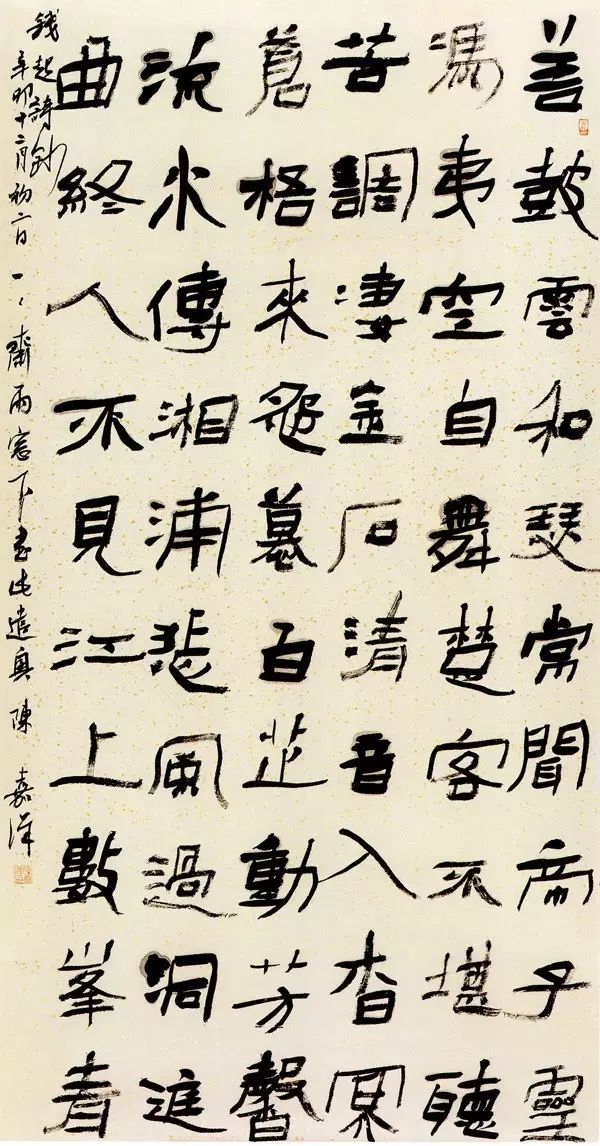 善鼓雲和瑟常聞帝子靈
馮夷空自舞楚客不堪聽
苦調凄金石清音入杳冥
蒼格來怨慕百芷動芳馨
流水傳湘浦悲風過洞庭
曲終人不見江上數峯青
錢起詩鈔
辛卯十二月初二日一一齋雨窗下書此遣興陳嘉